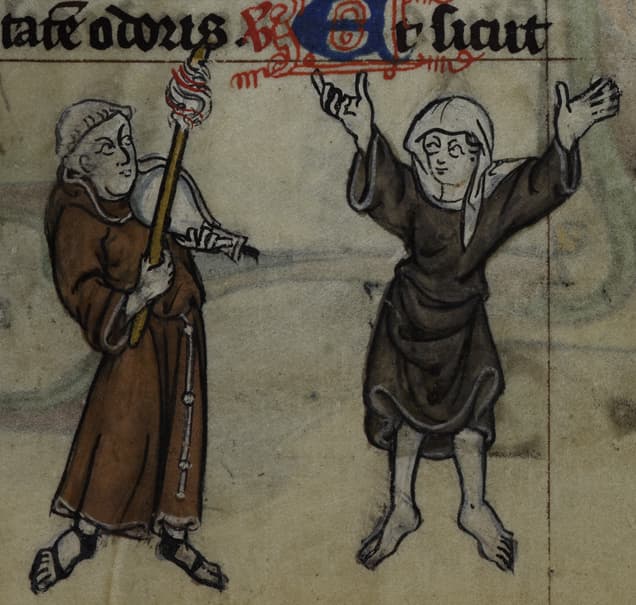 tatē odoris . Et sicut